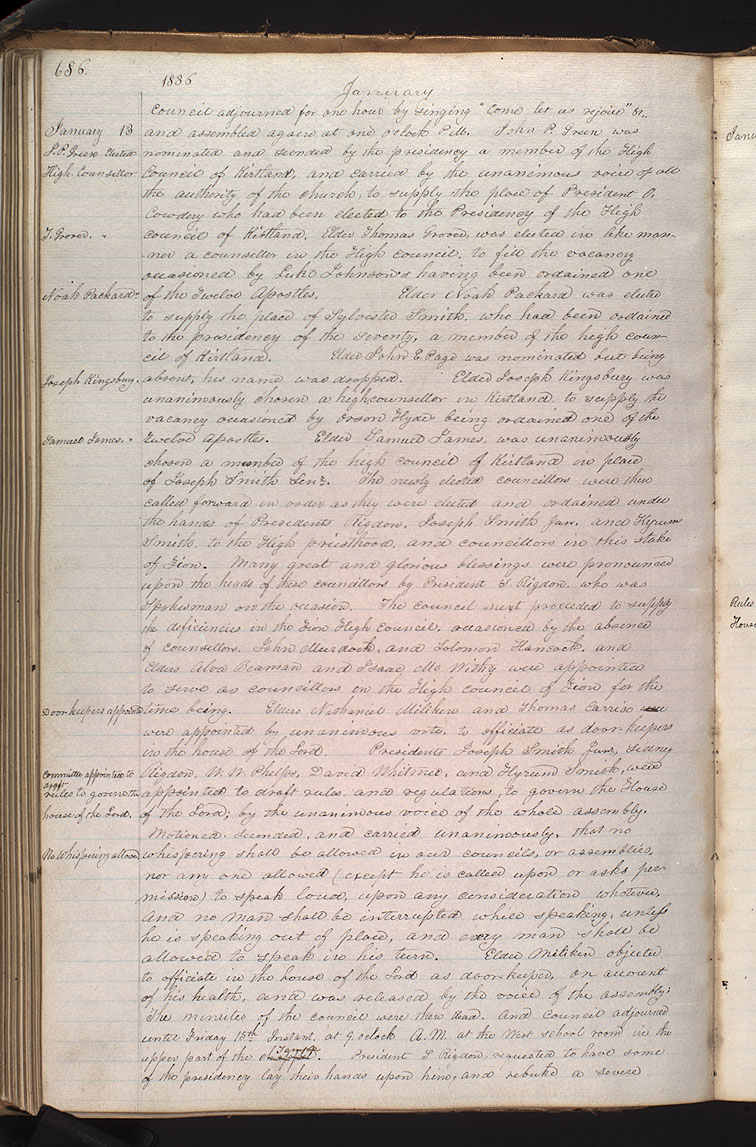 686.
1836
January
council adjourned for one hour by singing "Come let us rejoice" &c.,
January 13 and assembled again at one o'clock P.M. John P. Green was
J. P. Green Elected nominated and seconded by the presidency a member of the High
High Counsellor Council of Kirtland, and carried by the unanimous voice of all
the authority of the church, to supply the place of President O.
Cowdery who had been elected to the Presidency of the High
T. Grover. " council of Kirtland. Elder Thomas Grover, was elected in like man-
ner a counsellor in the High council, to fill the vacancy
occasioned by Luke Johnson's having been ordained one
Noah Packard " of the Twelve Apostles. Elder Noah Packard was elected
to supply the place of Sylvester Smith, who had been ordained
to the presidency of the seventy, a member of the high coun-
cil of Kirtland. Elder John E. Page was nominated but being
Joseph Kingsbury. absent, his name was dropped. Elder Joseph Kingsbury was
unanimously chosen a high counsellor in Kirtland, to supply the
vacancy occasioned by Orson Hyde being ordained one of the
Samuel James. " twelve apostles. Elder Samuel James, was unanimously
chosen a member of the high council of Kirtland in place
of Joseph Smith Senr. The newly elected councillors were then
called forward in order as they were elected and ordained under
the hands of Presidents Rigdon, Joseph Smith Jun. and Hyrum
Smith, to the High priesthood, and councillors in this stake
of Zion. Many great and glorious blessings were pronounced
upon the heads of these councillors by President S. Rigdon, who was
Spokesman on the occasion. The council next proceeded to supply
the deficiencies in the Zion High council, occasioned by the absence
of counsellors. John Murdock, and Solomon Hancock, and
Elders Alva Beaman and Isaac Mc Withy were appointed
to serve as councillors in the High council of Zion for the
Door keepers appointed time being. Elders Nathaniel Milliken and Thomas Carrico
were appointed by unanimous vote, to officiate as door-keepers
in the house of the Lord. Presidents Joseph Smith Junr, Sidney
Committee appointed to Rigdon, W. W. Phelps, David Whitmer, and Hyrum Smith, were
draft rules to govern the appointed to draft rules, and regulations, to govern the House
house of the Lord. of the Lord; by the unanimous voice of the whole assembly.
Motioned, seconded, and carried unanimously, that no
No Whispering allowed whispering shall be allowed in our councils, or assemblies,
nor any one allowed (except he is called upon or asks per-
mission) to speak loud, upon any consideration whatever,
And no man shall be interrupted while speaking, unless
he is speaking out of place, and every man shall be
allowed to speak in his turn. Elder Miliken objected
to officiate in the house of the Lord as door-keeper, on account
of his health, and was released by the voice of the assembly;
The minutes of the council were then read, And council adjourned
until Friday 15th Instant, at 9, oclock A.M. at the West school room in the
upper part of the Temple. President S. Rigdon, requested to have some
of the presidency lay their hands upon him, and rebuke a severe
Janu
Rules
House